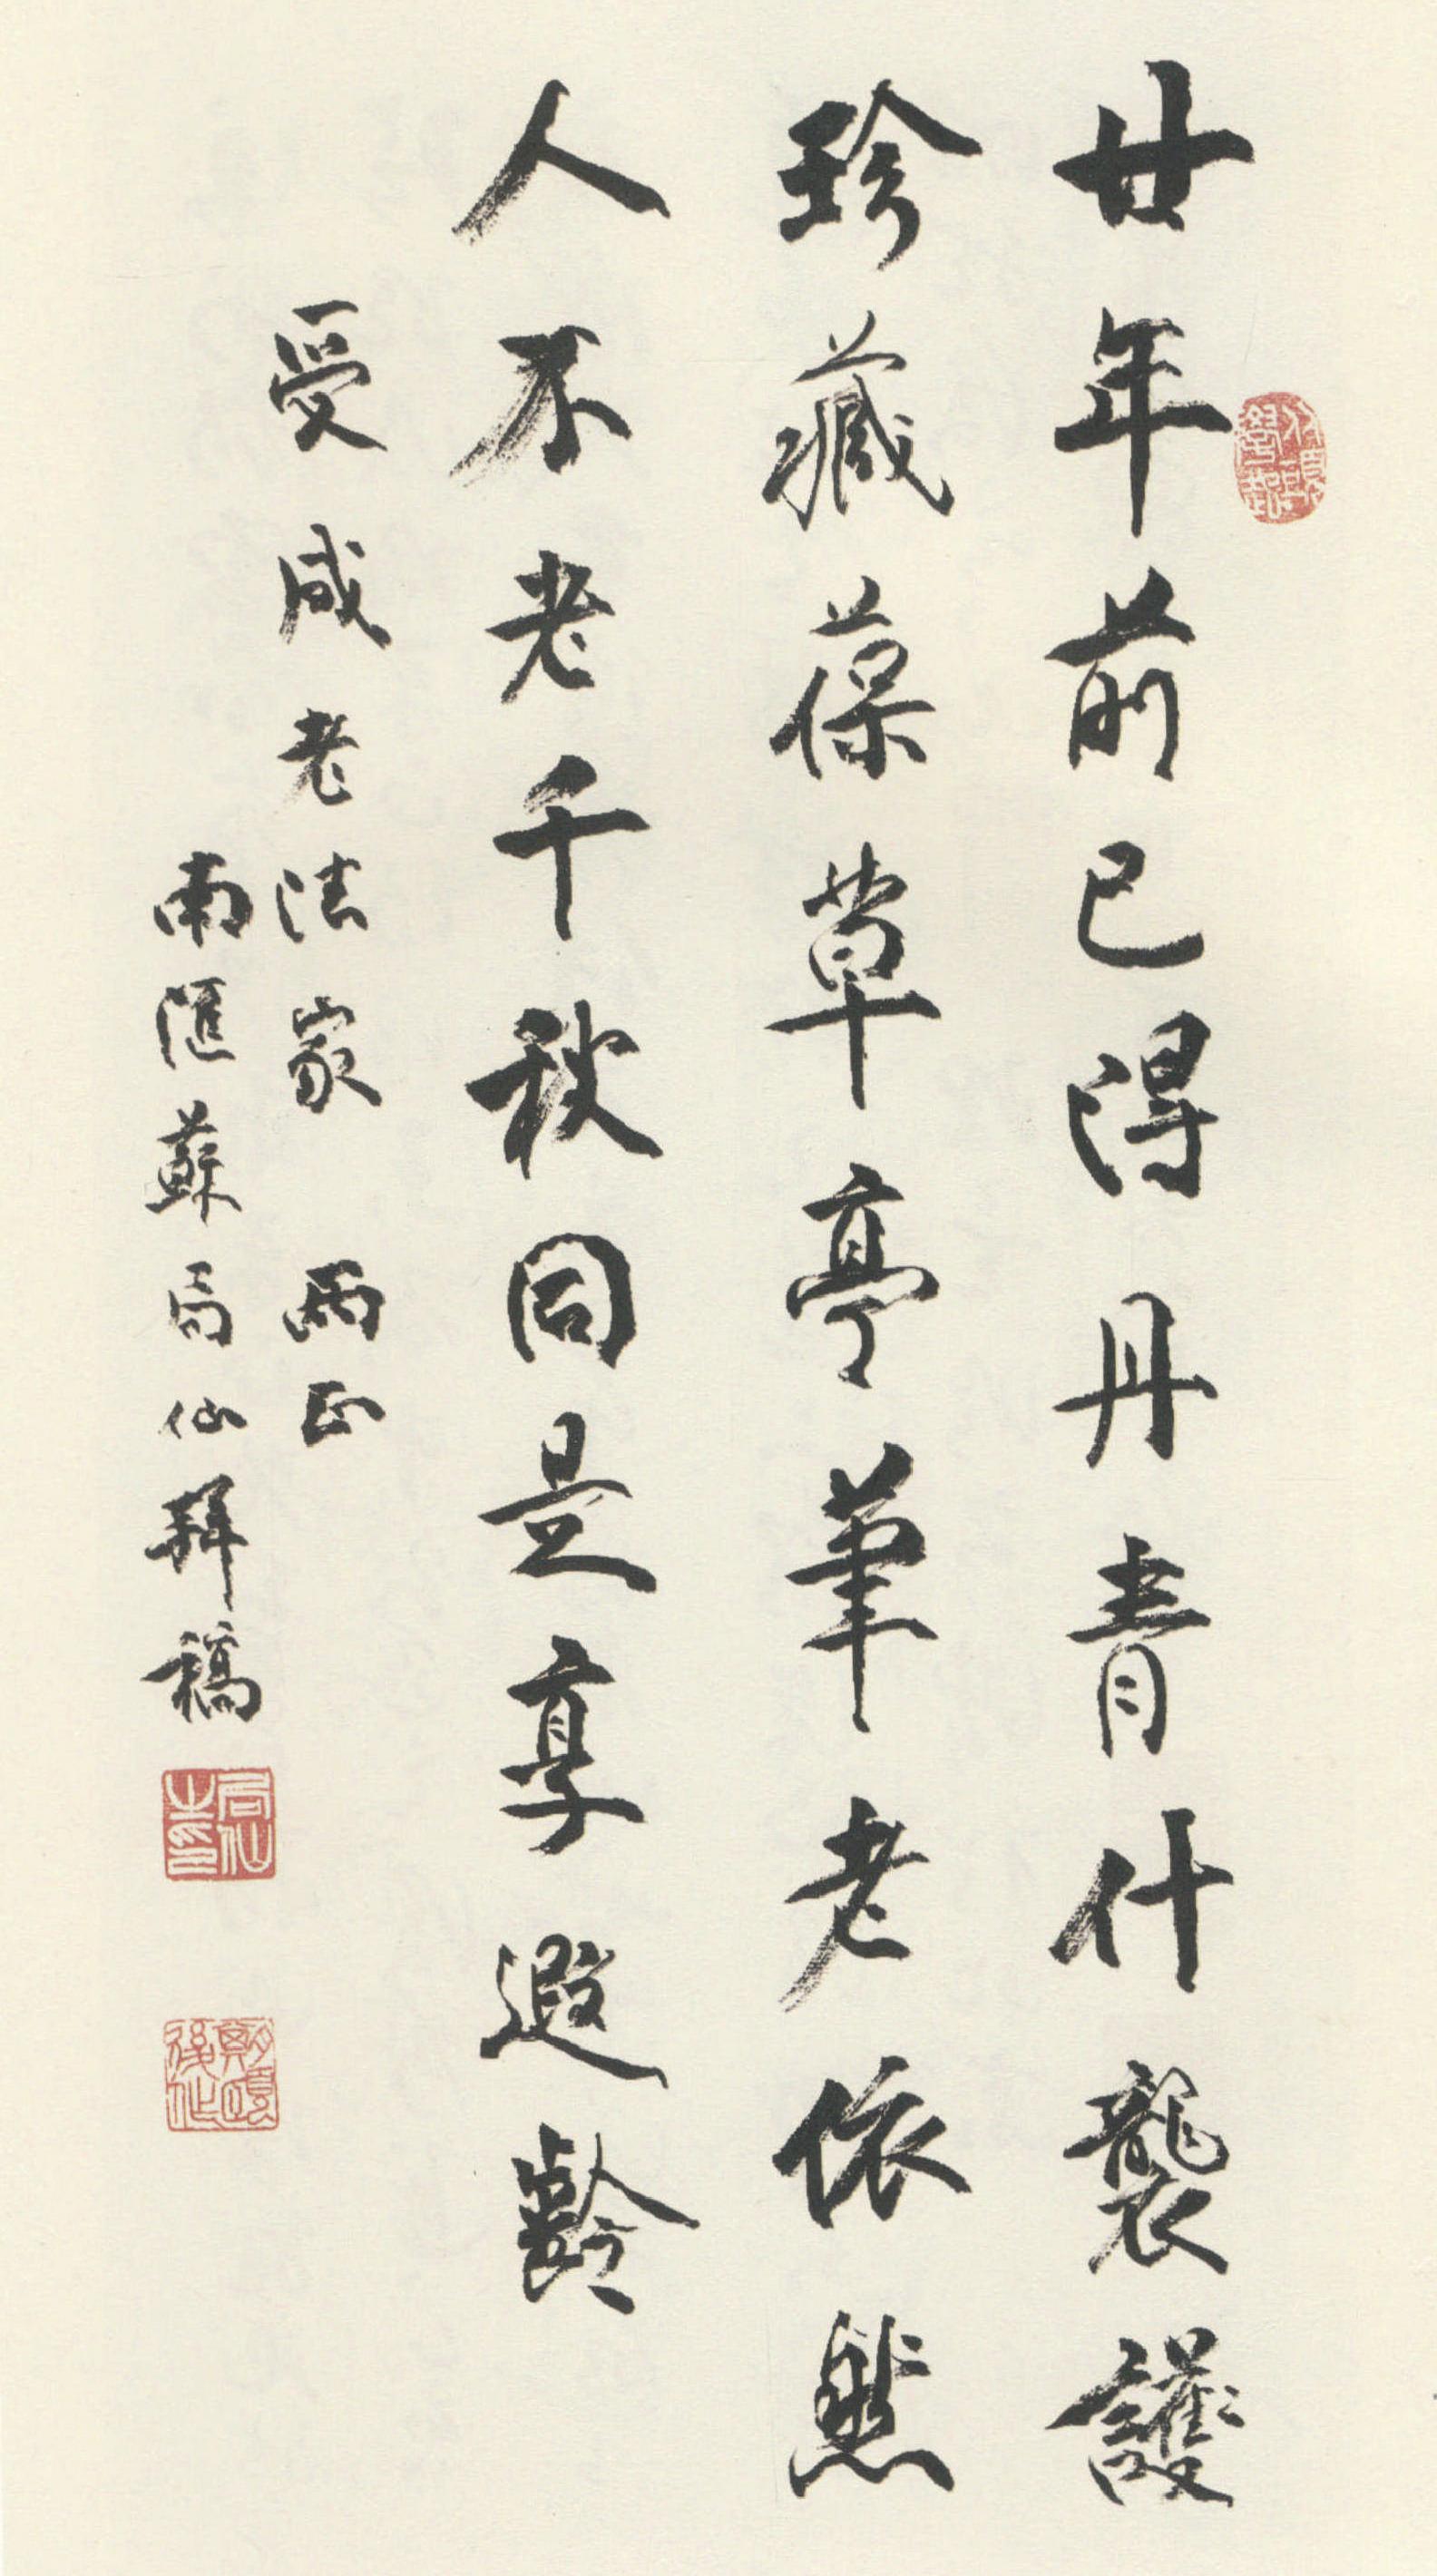 廿年前已得丹青什襲護
珍藏葆草亭筆老依然
人不老千秋同是享遐齡
受咸老法家兩正
南匯蘇局仙拜稿
局仙之印